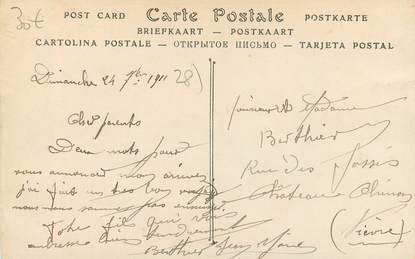 30€
POST CARD Carte Postale POSTKARTE
BRIEFKAART - POSTKAART
CARTOLINA POSTALE - ОТКРЫТОЕ ПИСЬМО - TARJETA POSTAL
Dimanche 24 7bre 1911
28)
Chers parents
Deux mots pour
vous annoncer mon arrivée
j'ai fait un très bon voyage
nous nous sommes pas ennuyé
Votre fils qui vous
embrasse bien tendrement
Berthier
Monsieur et Madame
Berthier
Rue des Fossés
Château Chinon
(Nièvre)